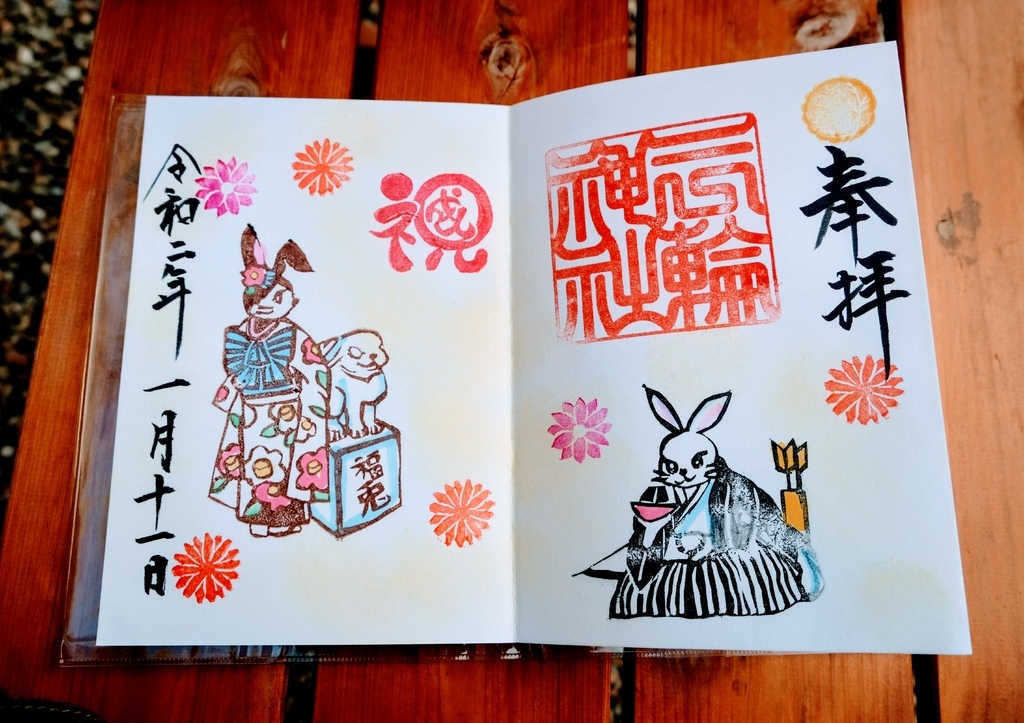 奉拝
三輪
神社
祝
成
福兎
令和二年 一月十一日